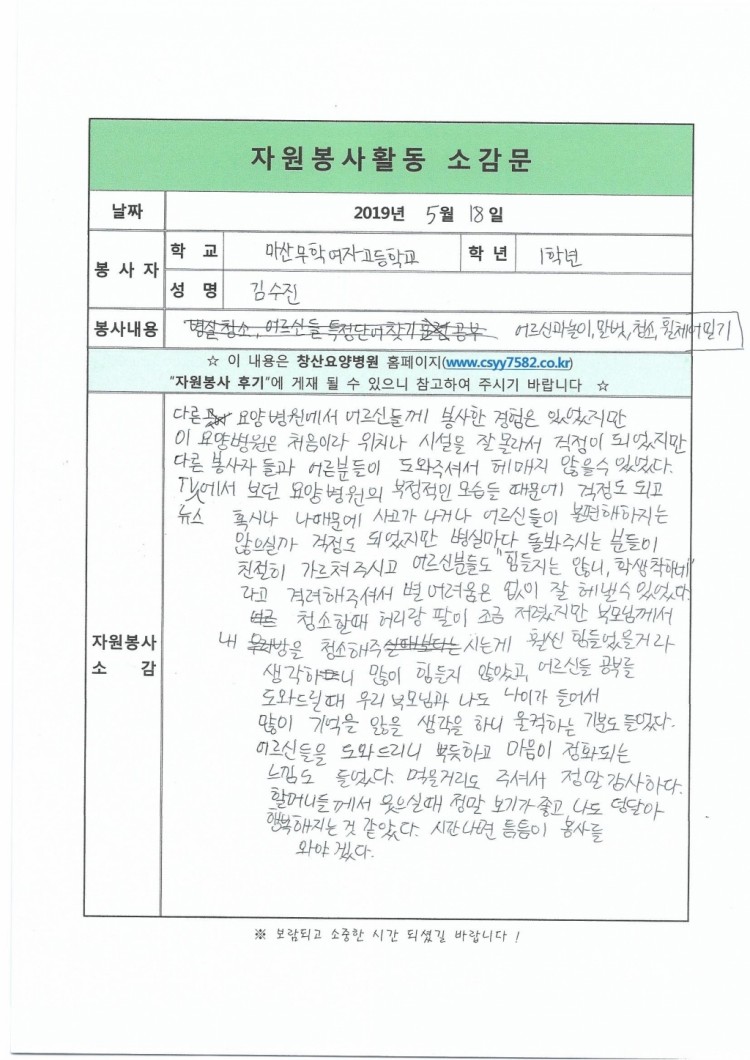 자원봉사활동 소감문
날짜 2019년 5월 18일
봉사자 학교 마산무학여자고등학교 학년 1학년
성명 김수진
봉사내용 병실청소, 어르신들 특정단어찾기 공부 어르신과놀이, 말벗, 청소, 휠체어밀기
☆ 이 내용은 창산요양병원 홈페이지(www.csyy7582.co.kr)
"자원봉사 후기"에 게재 될 수 있으니 참고하여 주시기 바랍니다 ☆
자원봉사
소 감
다른 요양병원에서 어르신들께 봉사한 경험은 있었지만
이 요양병원은 처음이라 위치나 시설을 잘 몰라서 걱정이 되었지만
다른 봉사자 들과 어른분들이 도와주셔서 헤매지 않을수 있었다.
TV에서 보던 요양병원의 부정적인 모습들 때문에 걱정도 되고
뉴스 혹시나 나때문에 사고가 나거나 어르신들이 불편해하지는
않으실까 걱정도 되었지만 병실마다 돌봐주시는 분들이
친절히 가르쳐주시고 어르신분들도 "힘들지는 않니, 학생착하네"
라고 격려해주셔서 별 어려움은 없이 잘 해낼수 있었다.
청소할때 허리랑 팔이 조금 저렸지만 부모님께서
내 방을 청소해주실때보다는 시는게 훨씬 힘들었을거라
생각하니 많이 힘들지 않았고, 어르신들 공부를
도와드릴때 우리 부모님과 나도 나이가 들어서
많이 기억을 잃을 생각을 하니 울컥하는 기분도 들었다.
어르신들을 도와드리니 뿌듯하고 마음이 정화되는
느낌도 들었다. 먹을거리도 주셔서 정말 감사하다.
할머니들께서 웃으실때 정말 보기가 좋고 나도 덩달아
행복해지는 것 같았다. 시간나면 틈틈이 봉사를
와야겠다.
※ 보람되고 소중한 시간 되셨길 바랍니다 !